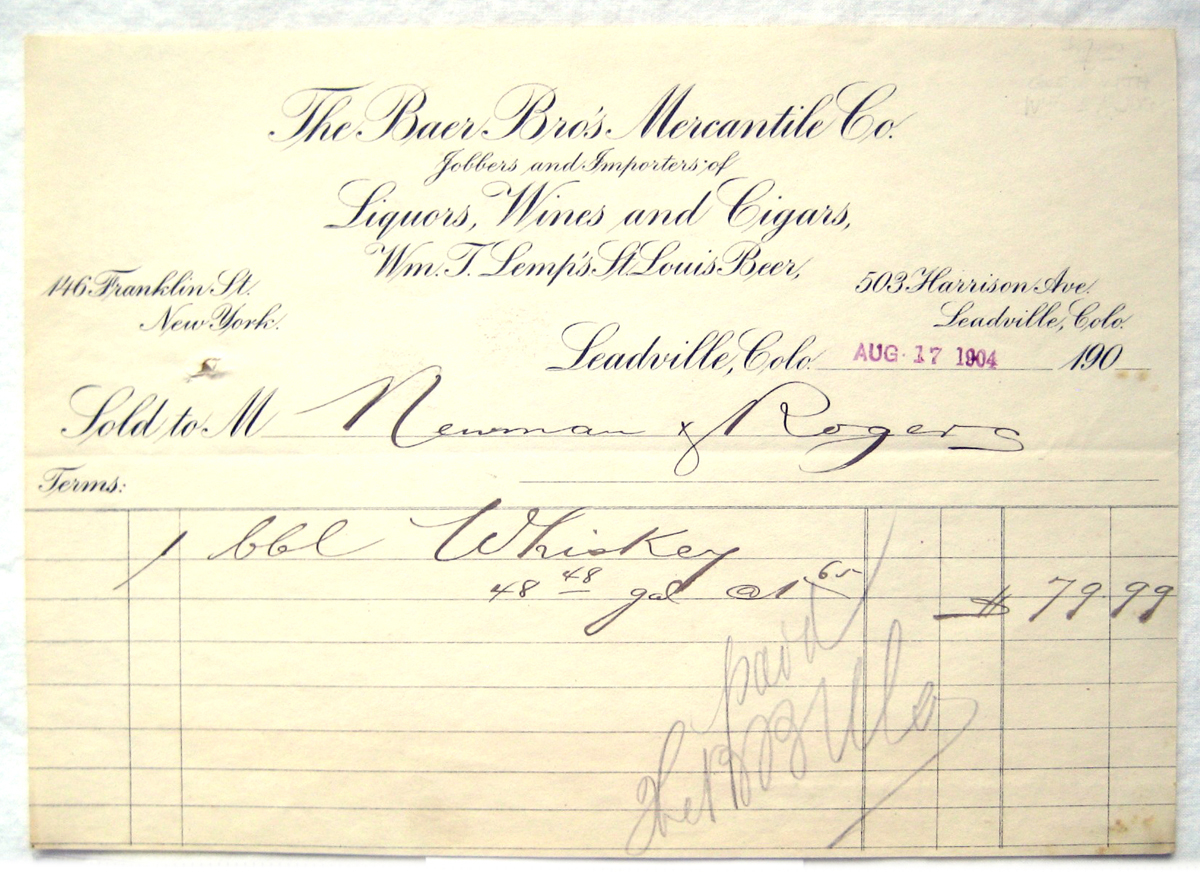 The Baer Bro's Mercantile Co.
Jobbers and Importers of
Liquors, Wines and Cigars,
Wm. T. Lemp's St. Louis Beer,
146 Franklin St.
New York.
503 Harrison Ave.
Leadville, Colo.
Leadville, Colo. AUG 17 1904 190
Sold to M Newman & Rogers
Terms:
1 bbl Whiskey
48 48 gal @ 1 65 $ 79 99
paid